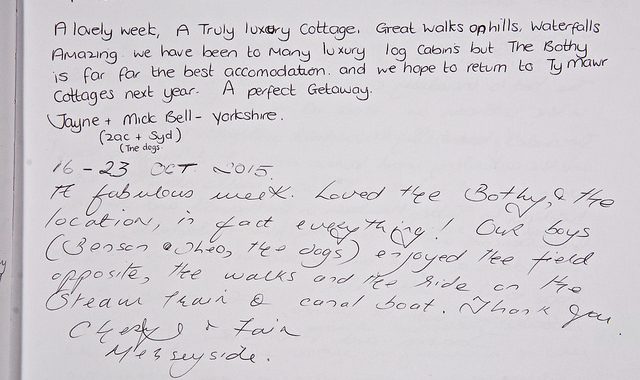 A lovely week, A Truly luxury Cottage. Great walks on hills, Waterfalls
Amazing. we have been to many luxury log cabins but The Bothy
is far far the best accomodation. and we hope to return to Ty Mawr
Cottages next year. A perfect Getaway.
Jayne + Mick Bell - Yorkshire.
(Zac + Syd)
(The dogs.
16 - 23 OCT 2015.
A fabulous week. Loved the Bothy, & the
location, in fact everything! Our boys
(Benson & Theo, the dogs) enjoyed the field
opposite, the walks and the ride on the
Steam train & canal boat. Thank you.
Cheryl & Iain
Merseyside.